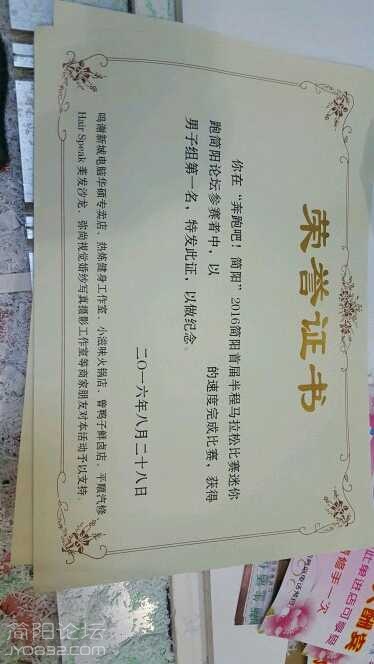 荣誉证书
你在“奔跑吧！简阳”2016简阳首届半程马拉松比赛迷你
跑简阳论坛参赛者中，以 的速度完成比赛，获得
男子组第一名，特发此证，以做纪念。
二〇一六年八月二十八日
鸣谢新城电脑华硕专卖店、热炼健身工作室、小滋味火锅店、曾鸭子鲜卤店、平顺汽修
Hair Speak 美发沙龙、弥尚视觉婚纱写真摄影工作室等商家朋友对本活动予以支持。
此单进店可享受
手一次
简阳论坛
JY0832.com